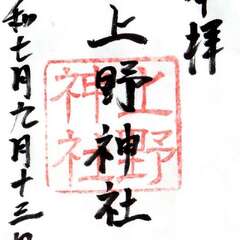 拝
上野神社
上野
神社
和七年九月十三日